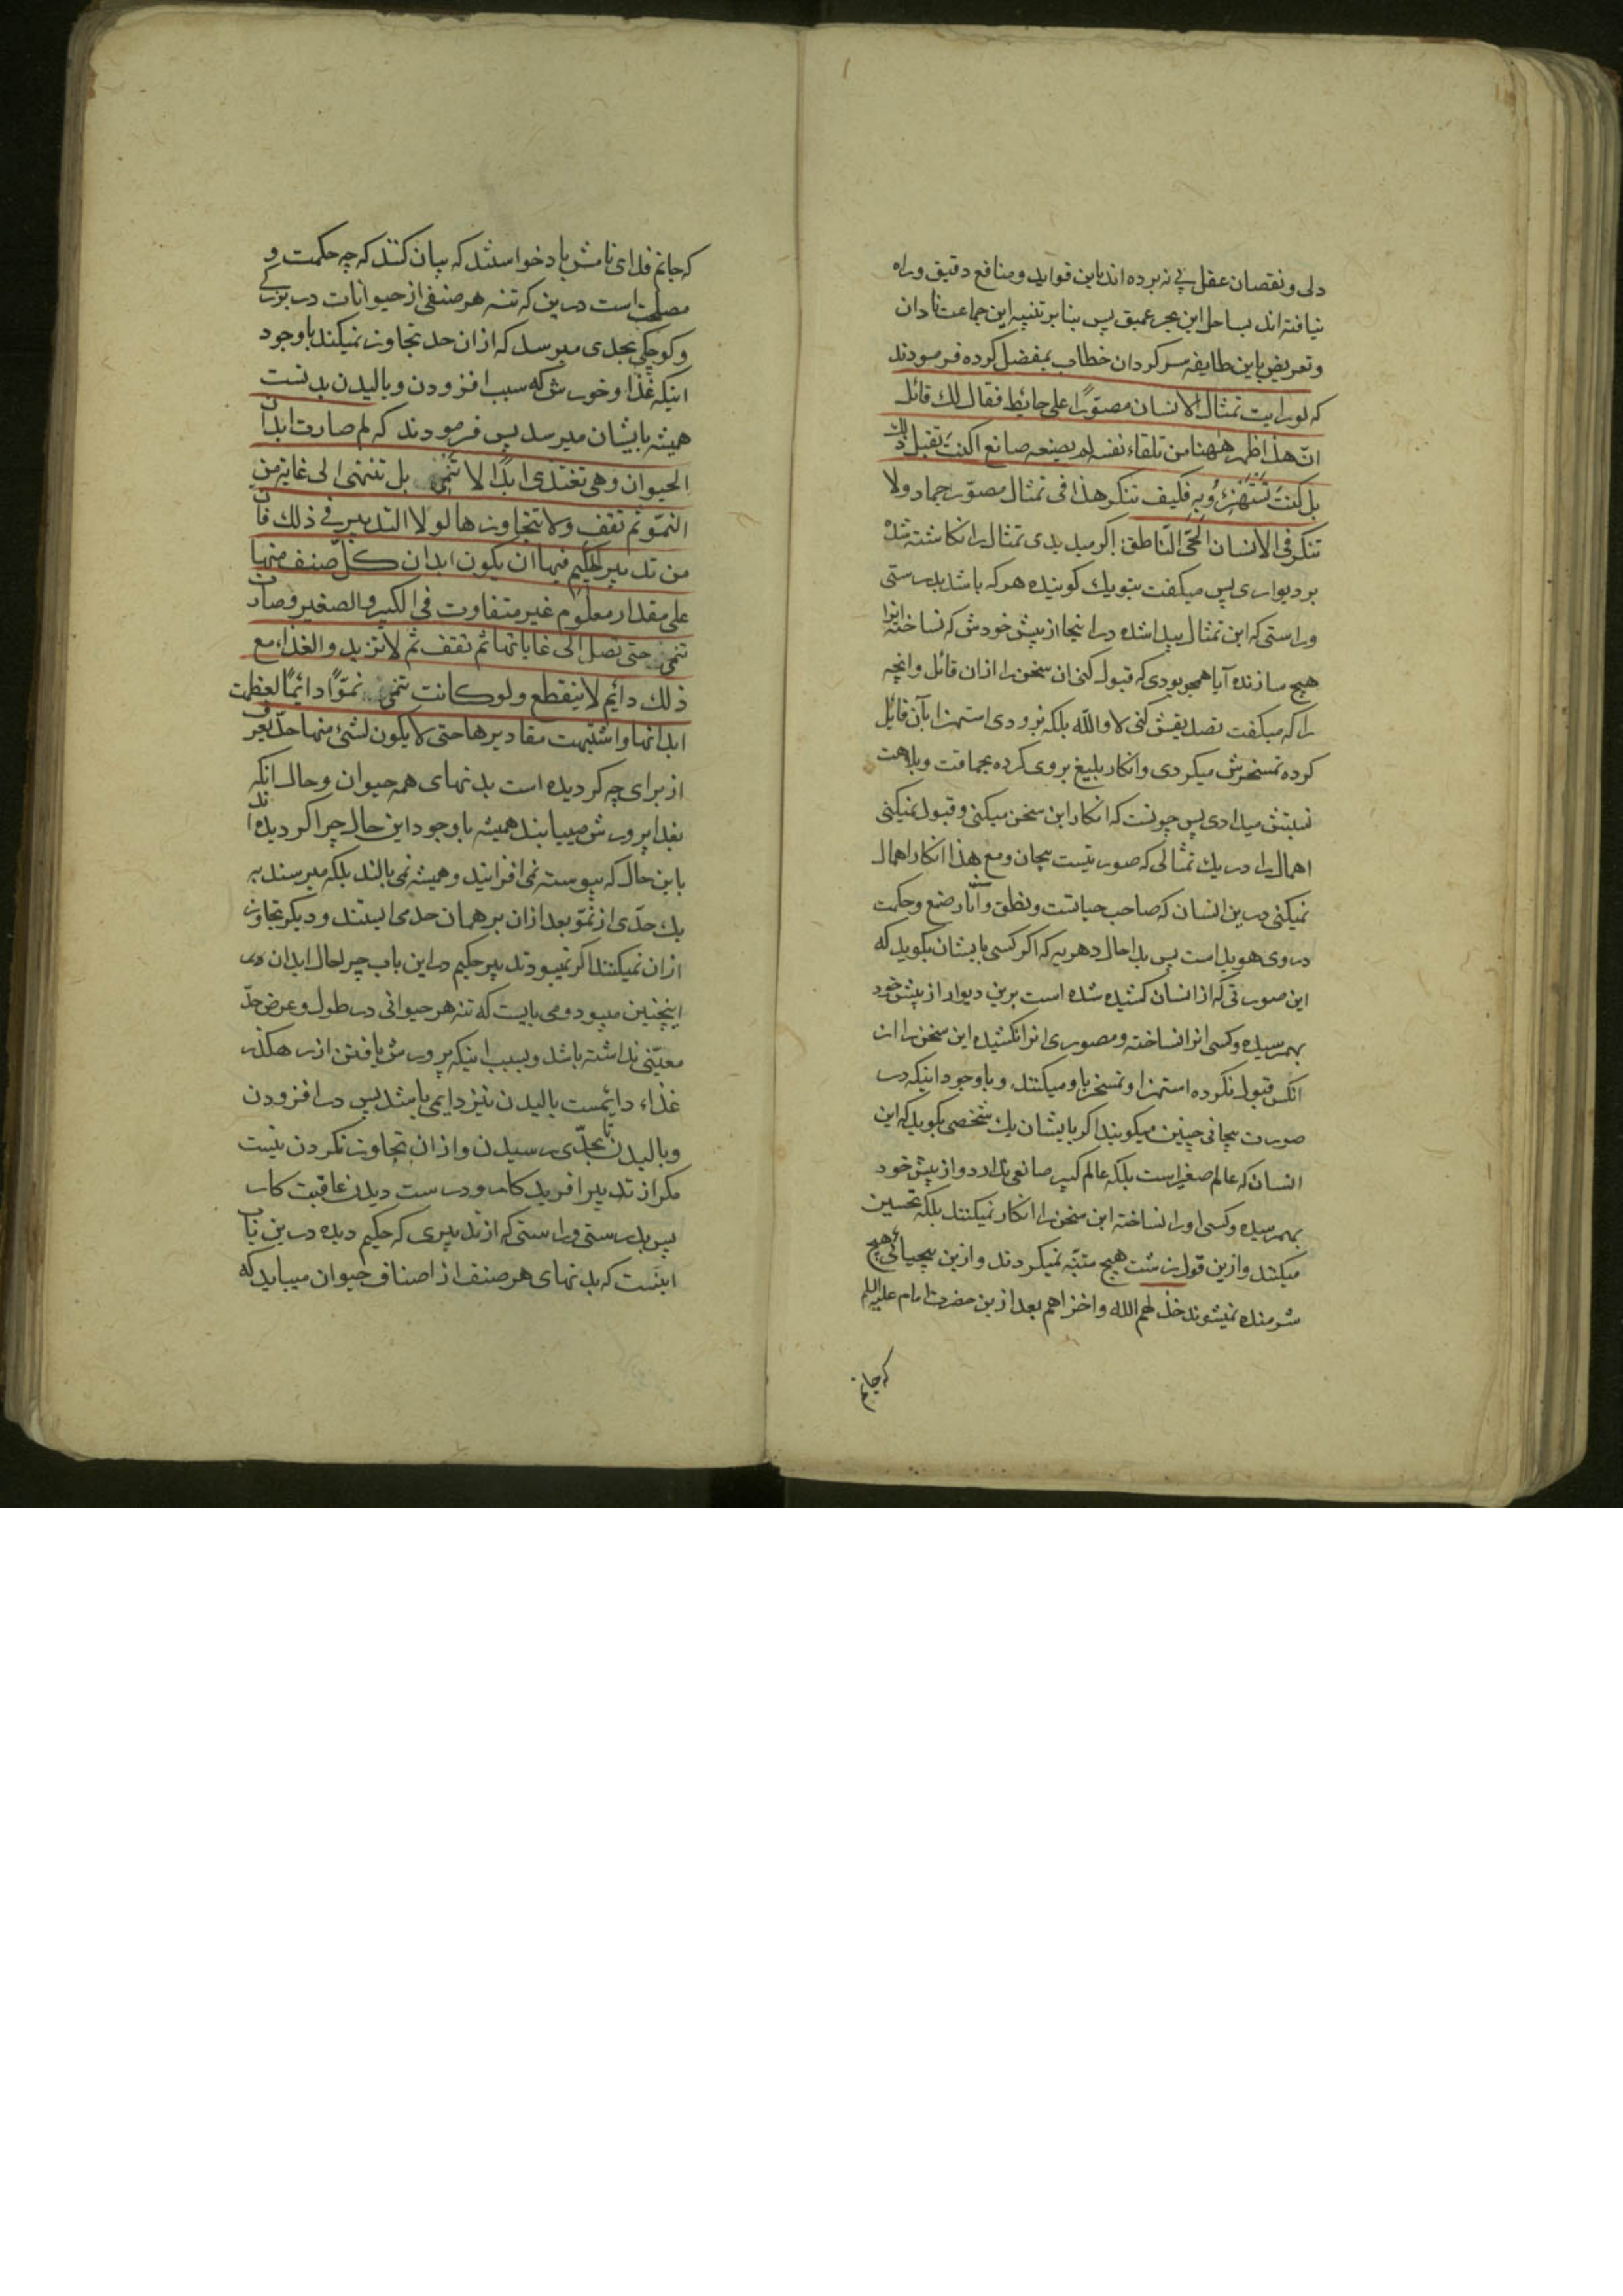 دلی و نقصان عقل پی نه برده اند باین فواید و منافع دقیق و راه
نیافته اند بساحل این بحر عمیق پس بنابر تنبیه این جماعت نادان
و تعریض باین طایفه سرکردان خطاب بمفضل کرده فرمودند
که لو رایت تمثال الانسان مصوّرًا علی حائط فقال لک قائل
انّ هذا ظهر ههنا من تلقاء نفسه لم یصنعه صانع اکنتَ تقبل ذلک
بل کنتَ تستهزءُ به فکیف تنکر هذا فی تمثال مصوّر جماد ولا
تنکر فی الانسان الحیّ النّاطق اکر میدیدی تمثال را نکاشته شده
بر دیواری پس میکفت بتو یک کوینده هو که باشد بدرستی
و راستی که این تمثال پیدا شده در اینجا از پیش خودش که نساخته انرا
هیچ سازنده آیا همچو بودی که قبول کنی ان سخن را ازان قائل و انچه
را که میکفت تصدیقش کنی لا والله بلکه بزودی استهزا بآن قایل
کرده تمسخرش میکردی و انکار بلیغ بروی کرده بحماقت و بلاهت
نسبتش میدادی پس چونست که انکار این سخن میکنی و قبول نمیکنی
اهمال را در یک تمثالی که صورتیست بیجان و مع هذا انکار اهمال
نمیکنی درین انسان که صاحب حیاتست و نطق و آثار صنع و حکمت
در وی هویداست پس بدا حال دهریه که اکر کسی بایشان بکوید که
این صورتی که از انسان کشیده شده است برین دیوار از پیش خود
بهمرسیده و کسی انرا نساخته و مصوری انرا نکشیده این سخن را از
انکس قبول نکرده استهزا و تمسخر باو میکنند و با وجود اینکه در
صورت بیجانی چنین میکویند اکر بایشان یک شخصی بکوید که این
انسان که عالم صغیر است بلکه عالم کبیر صانعی ندارد و از پیش خود
بهمرسیده و کسی او را نساخته این سخن را انکار نمیکنند بلکه تحسین
میکنند و ازین قول زشت هیچ متنبّه نمیکردند و ازین بیحیائی هیچ
شرمنده نمیشوند خذلهم الله و اخزاهم بعد ازین حضرت امام علیه السلم
که جانم
که جانم فدای نامش باد خواستند که بیان کنند که چه حکمت و
مصلحت است درین که تنه هر صنفی از حیوانات در بزرکی
و کوچکی بحدی میرسد که ازان حد تجاوز نمیکند با وجود
اینکه غذا و خورش که سبب افزودن و بالیدن بدنست
همیشه بایشان میرسد پس فرمودند که لم صارت ابدان
الحیوان وهی تغتذی ابدًا لا تنمی بل تنتهی الی غایة من
النموّ ثم تقف ولا تتجاوزها لولا التدبیر فی ذلک فانّ
من تدبیر الحکیم فیها ان یکون ابدان کلّ صنف منها
علی مقدار معلوم غیر متفاوت فی الکبیر و الصغیر و صارت
تنمی حتی تصل الی غایاتها ثم تقف ثم لا تزید والغذاء مع
ذلک دایم لا ینقطع ولو کانت تنمی نموًّا دائمًا لعظمت
ابدانها و اشتبهت مقادیرها حتی لا یکون لشئ منها حدّ یعرف
از برای چه کردیده است بدنهای همه حیوان و حال انکه
بغذا پرورش مییابند همیشه با وجود این حال چرا کردیده اند
باین حال که پیوسته نمی افزایند و همیشه نمی بالند بلکه میرسند به
یک حدّی از نموّ بعد ازان بر همان حد می ایستند و دیکر تجاوز
ازان نمیکنند اکر نمیبود تدبیر حکیم در این باب چرا حال ابدان
اینچنین میبود و می بایست که تنه هر حیوانی در طول و عرض حدّ
معیّنی نداشته باشد و بسبب اینکه پرورش یافتن از رهکذر
غذاء دائمست بالیدن نیز دایمی باشد پس در افزودن
و بالیدن تا بحدّی رسیدن و ازان تجاوز نکردن نیست
مکر از تدبیر افریدکار و درست دیدن عاقبت کار
پس بدرستی و راستی که از تدبیری که حکیم دیده درین باب
اینست که بدنهای هر صنف از اصناف حیوان میباید که